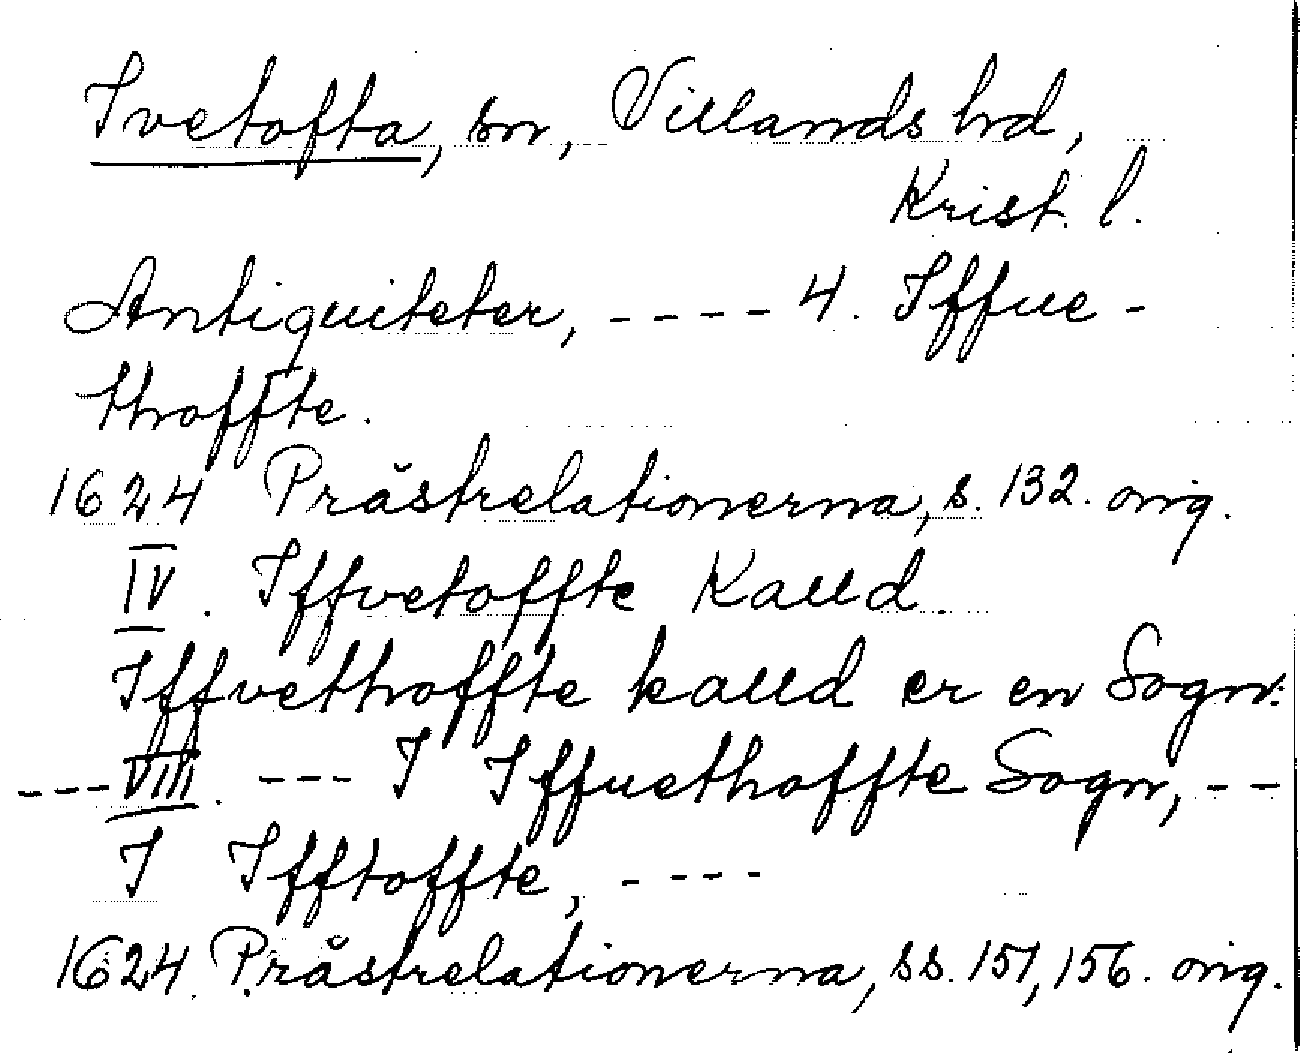 Ivetofta, sn, Villands hd,
Krist. l.
Antiquiteter, ---- 4. Iffue-
thoffte.
1624 Prästrelationerna, s. 132. orig.
IV. Iffvetoffte Kalld.
Iffvethoffte kalld er en Sogn:
---VIII. --- I Iffuethoffte Sogn, --
I Ifftoffte, ----
1624. Prästrelationerna, ss. 151, 156. orig.